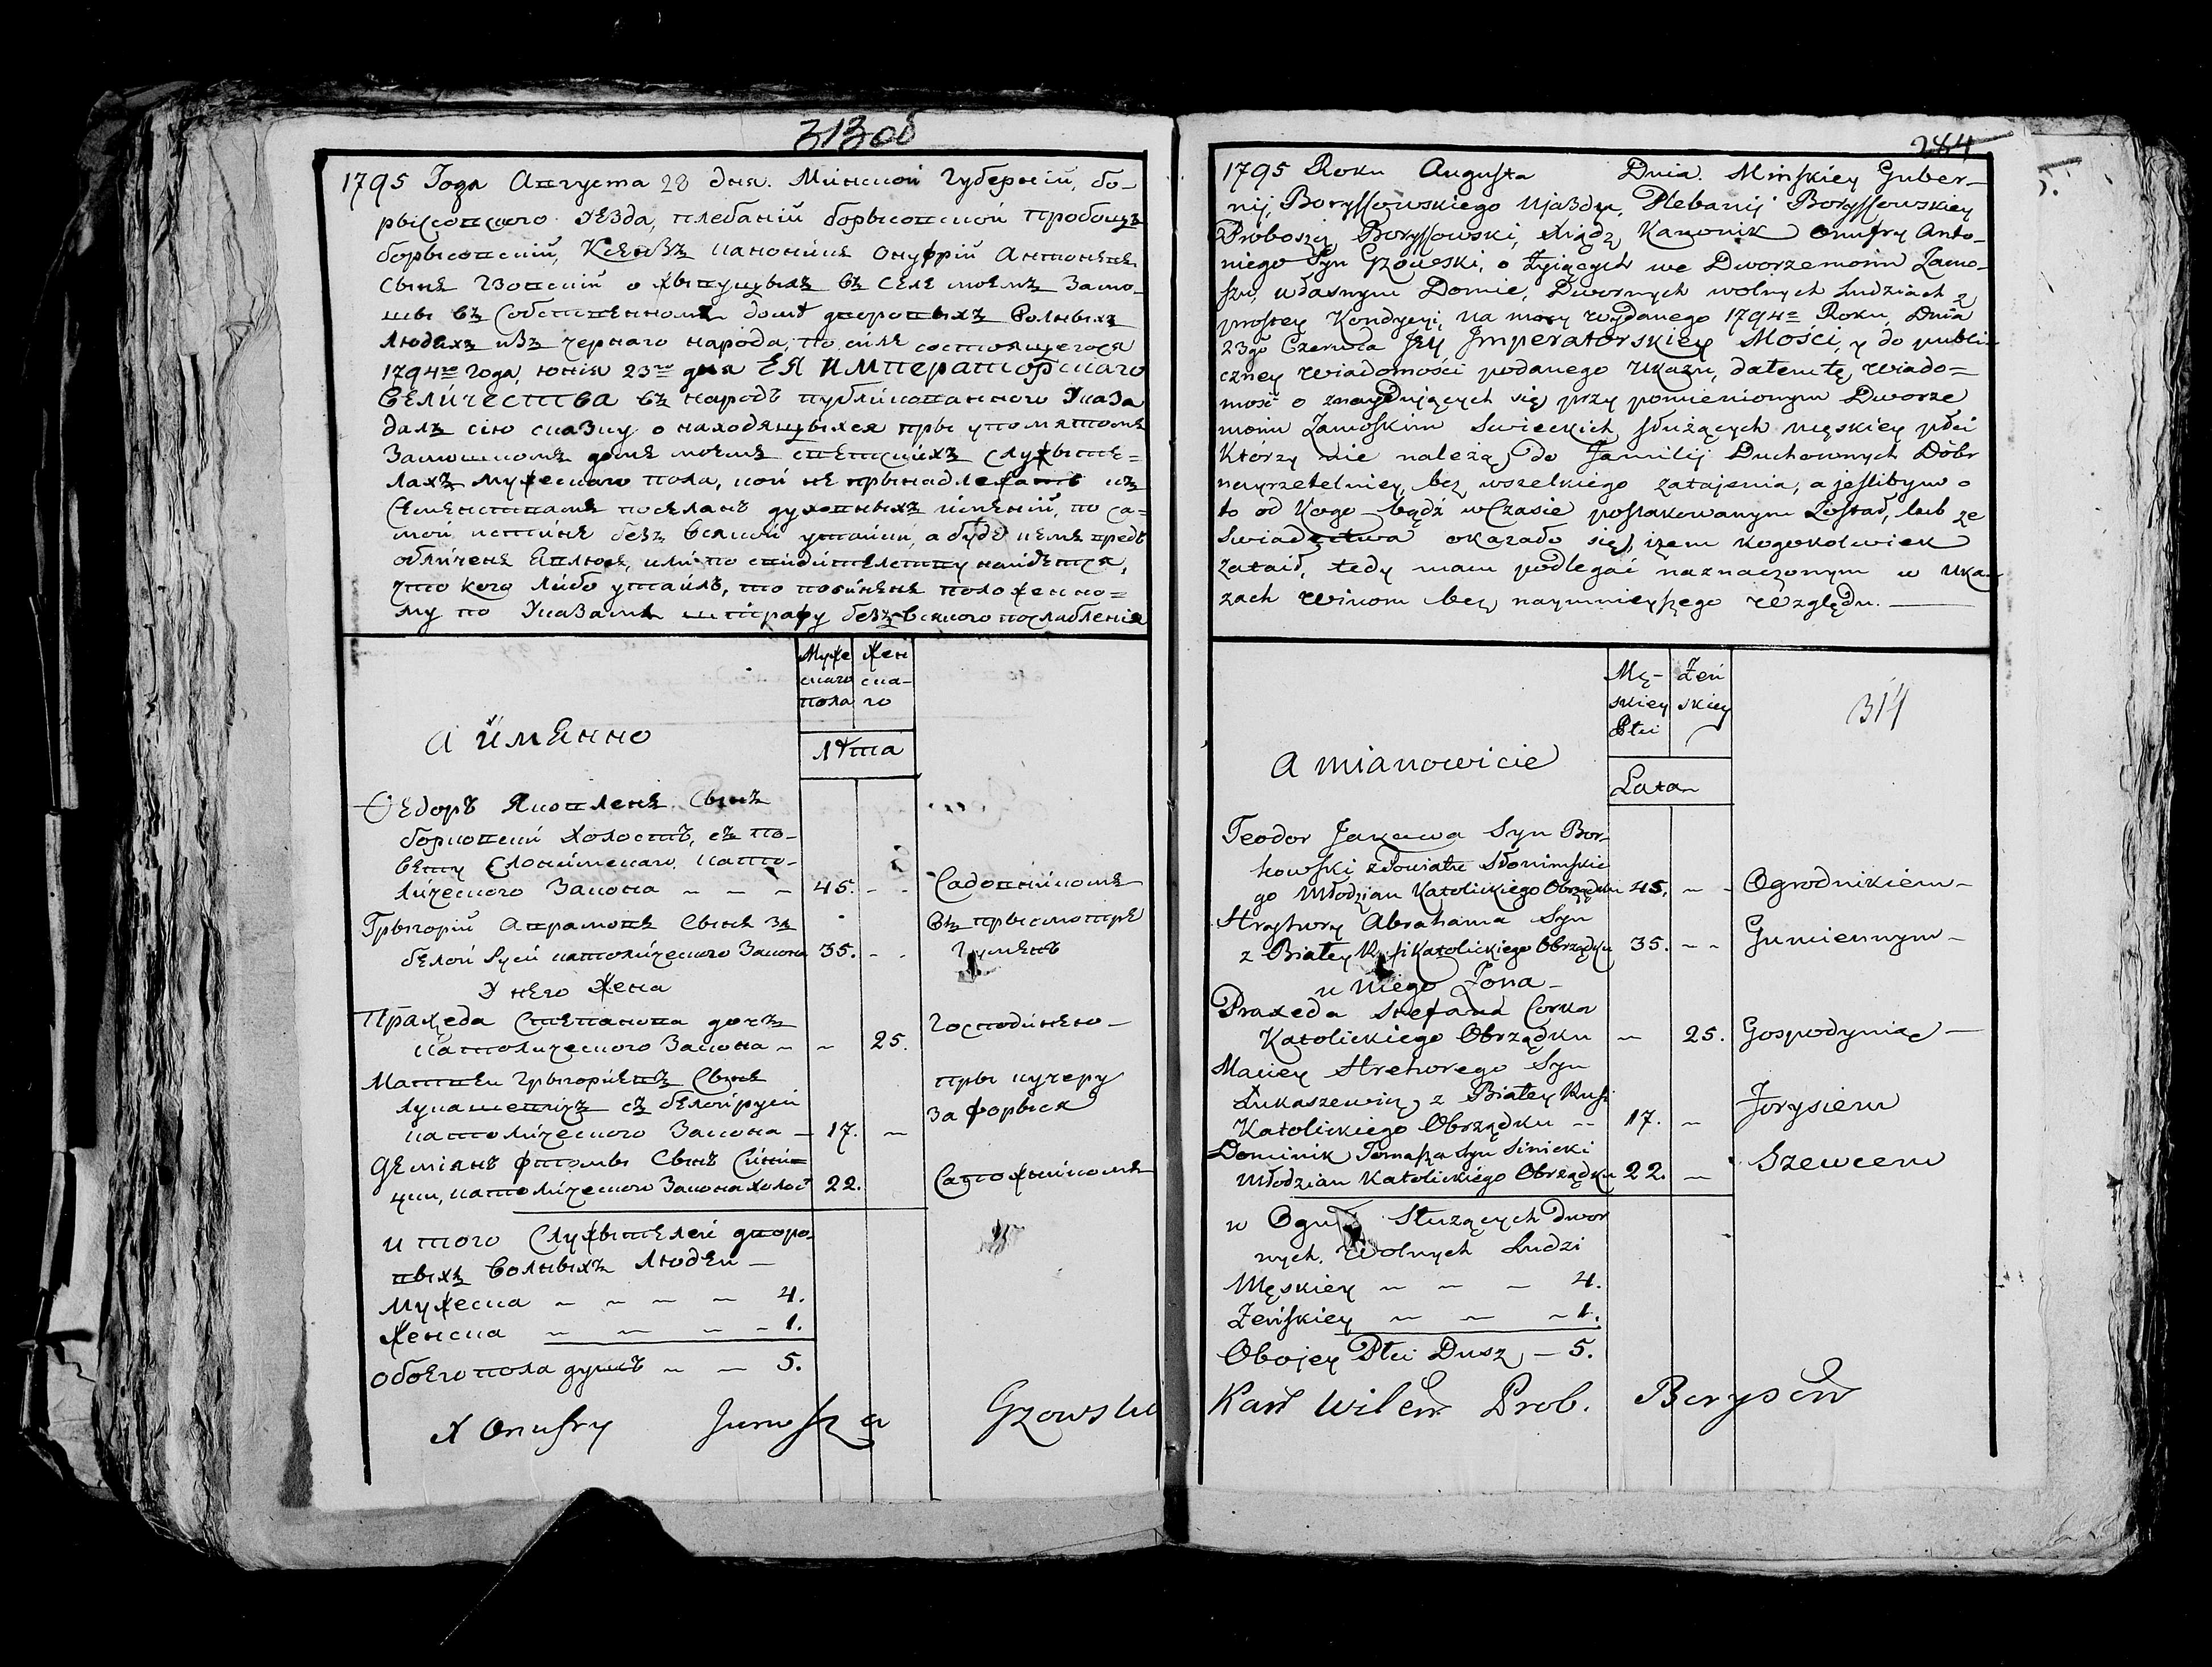 313об
1795 Года Августа 28 дня. Минской Губерній, бо-
рысовского Уезда, плебаній борысовской пробощъ
борысовскій, Ксензъ каноникъ Онуфрій Антоневъ
сынъ Гзовскій о жывущыхъ въ селе моемъ Замо-
шы въ Собственномъ доме дворовыхъ Волныхъ
людяхъ изъ черного народа, по силе состоящегося
1794го Года, юнія 23го дня ЕЯ ИМПЕРАТОРСКАГО
ВЕЛИЧЕСТВА въ народъ публикованного Указа
далъ сію сказку о находящыхся пры упомятомъ
Замошкомъ доме моемъ светскихъ служыте=
лахъ мужеского пола, кои не прынадлежатъ къ
Семенствамъ поселанъ духовныхъ именій, по са=
мой истине безъ всякой утайки, а буде кемъ предъ
обличенъ явлюся, или по свидителству найдется,
что кого либо утаилъ, то повиненъ положенно=
му по Указамъ штрафу безъ всякого послабленія
Муже Жен
ского ска-
пола го
А именно
лета
Федоръ Яковлевъ Сынъ
борковски Холостъ, съ по-
вету Слонимскаго като-
лического Закона ~ ~ ~ 45. - - Садовникомъ
Грыгорій Аврамовъ Сынъ зъ Въ прысмотре
белой Руси католического Закона 35. - - Гуменъ
У него Жена
Праxеда Степанова дочъ
католического Закона ~ ~ 25. Господинею -
Матвеи Грыгориевъ Сынъ пры кучеру
лукашевичъ съ белой руси за форыся
католического Закона - 17. ~
Деміянъ фтомы Сынъ Синиц
ки, католического Закона холост 22. Сапожникомъ
и того Служытелей дворо
выхъ волныхъ людеи -
Мужеска ~ ~ ~ ~ 4.
Женска ~ ~ ~ ~ 1.
обоего пола душъ ~ ~ 5.
X Onufry Junosza Gzowski
284
1795 Roku Augusta Dnia Minskiey Guber-
nij, Boryssowskiego Ujazdu, Plebanij Boryssowskiey
Proboszcz Boryssowski, Xiądz Kanonik Onufry Anto-
niego Syn Gzowski, o żyiących we Dworze moim Zamo-
szu, własnym Domie, Dwornych wolnych Ludziach z
prostey Kondycyi, na mocy wydanego 1794= Roku, Dnia
23go Czerwca Jey Imperatorskiey Mości, y do publi-
czney wiadomości podanego Ukazu, datem tę wiado=
mość o znaydujących się przy pomienionym Dworze
moim Zamoskim Swieckich służących męskiey płci
Którzy nie należą do Familij Duchownych Dóbr
nayrzetelniey, bez wszelkiego zatajenia, a jeslibym o
to od Kogo bądź w Czasie poszlakowanym Został, lub ze
Swiadectwa okazało się, iżem kogokolwiek
zataił, tedy mam podlegać naznaczonym w Uka-
zach winom bez naymnieyszego względu.
Mę- Żeń
skiey skiey
Płci
314
A mianowicie
Lata
Teodor Jakuwa Syn Bor-
kowski z Powiatu Słonimskie
go Młodzian Katolickiego Obrządku 45. ~ - Ogrodnikiem -
Hryhory Abrahama Syn
z Białey Rusi Katolickiego Obrządku 35. ~ ~ Gumiennym -
u niego Żona -
Praxeda Stefana Corka
Katolickiego Obrządku ~ 25. Gospodynią -
Maciey Hrehorego Syn
Łukaszewicz z Białey Rusi
Katolickiego Obrządku ~ 17. ~ Forysiem
Dominik Tomasza Syn Sinicki
Młodzian Katolickiego Obrządku 22. ~ Szewcem
w Ogu Służących dwor
nych, Wolnych Ludzi
Męskiey ~ ~ ~ 4.
Żeńskiey ~ ~ ~ 1.
Obojey Płci Dusz - 5.
Kan Wileń Prob. Borysów